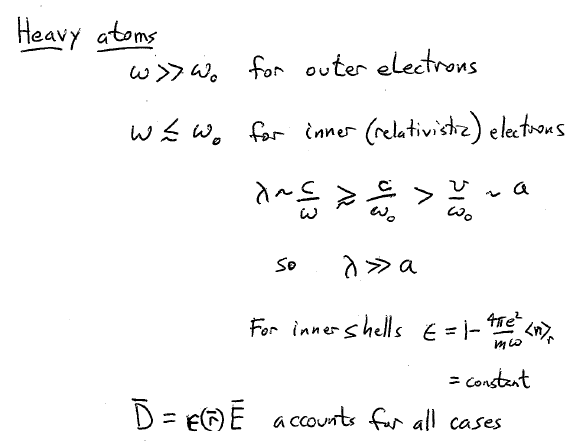 Heavy atoms
ω >> ω₀ for outer electrons
ω ≲ ω₀ for inner (relativistic) electrons
λ ~ c/ω ≳ c/ω₀ > v/ω₀ ~ a
so λ >> a
For inner shells ε = 1 - 4πe²/mω <n>ᵣ
= constant
D̄ = ε(r̄) Ē accounts for all cases